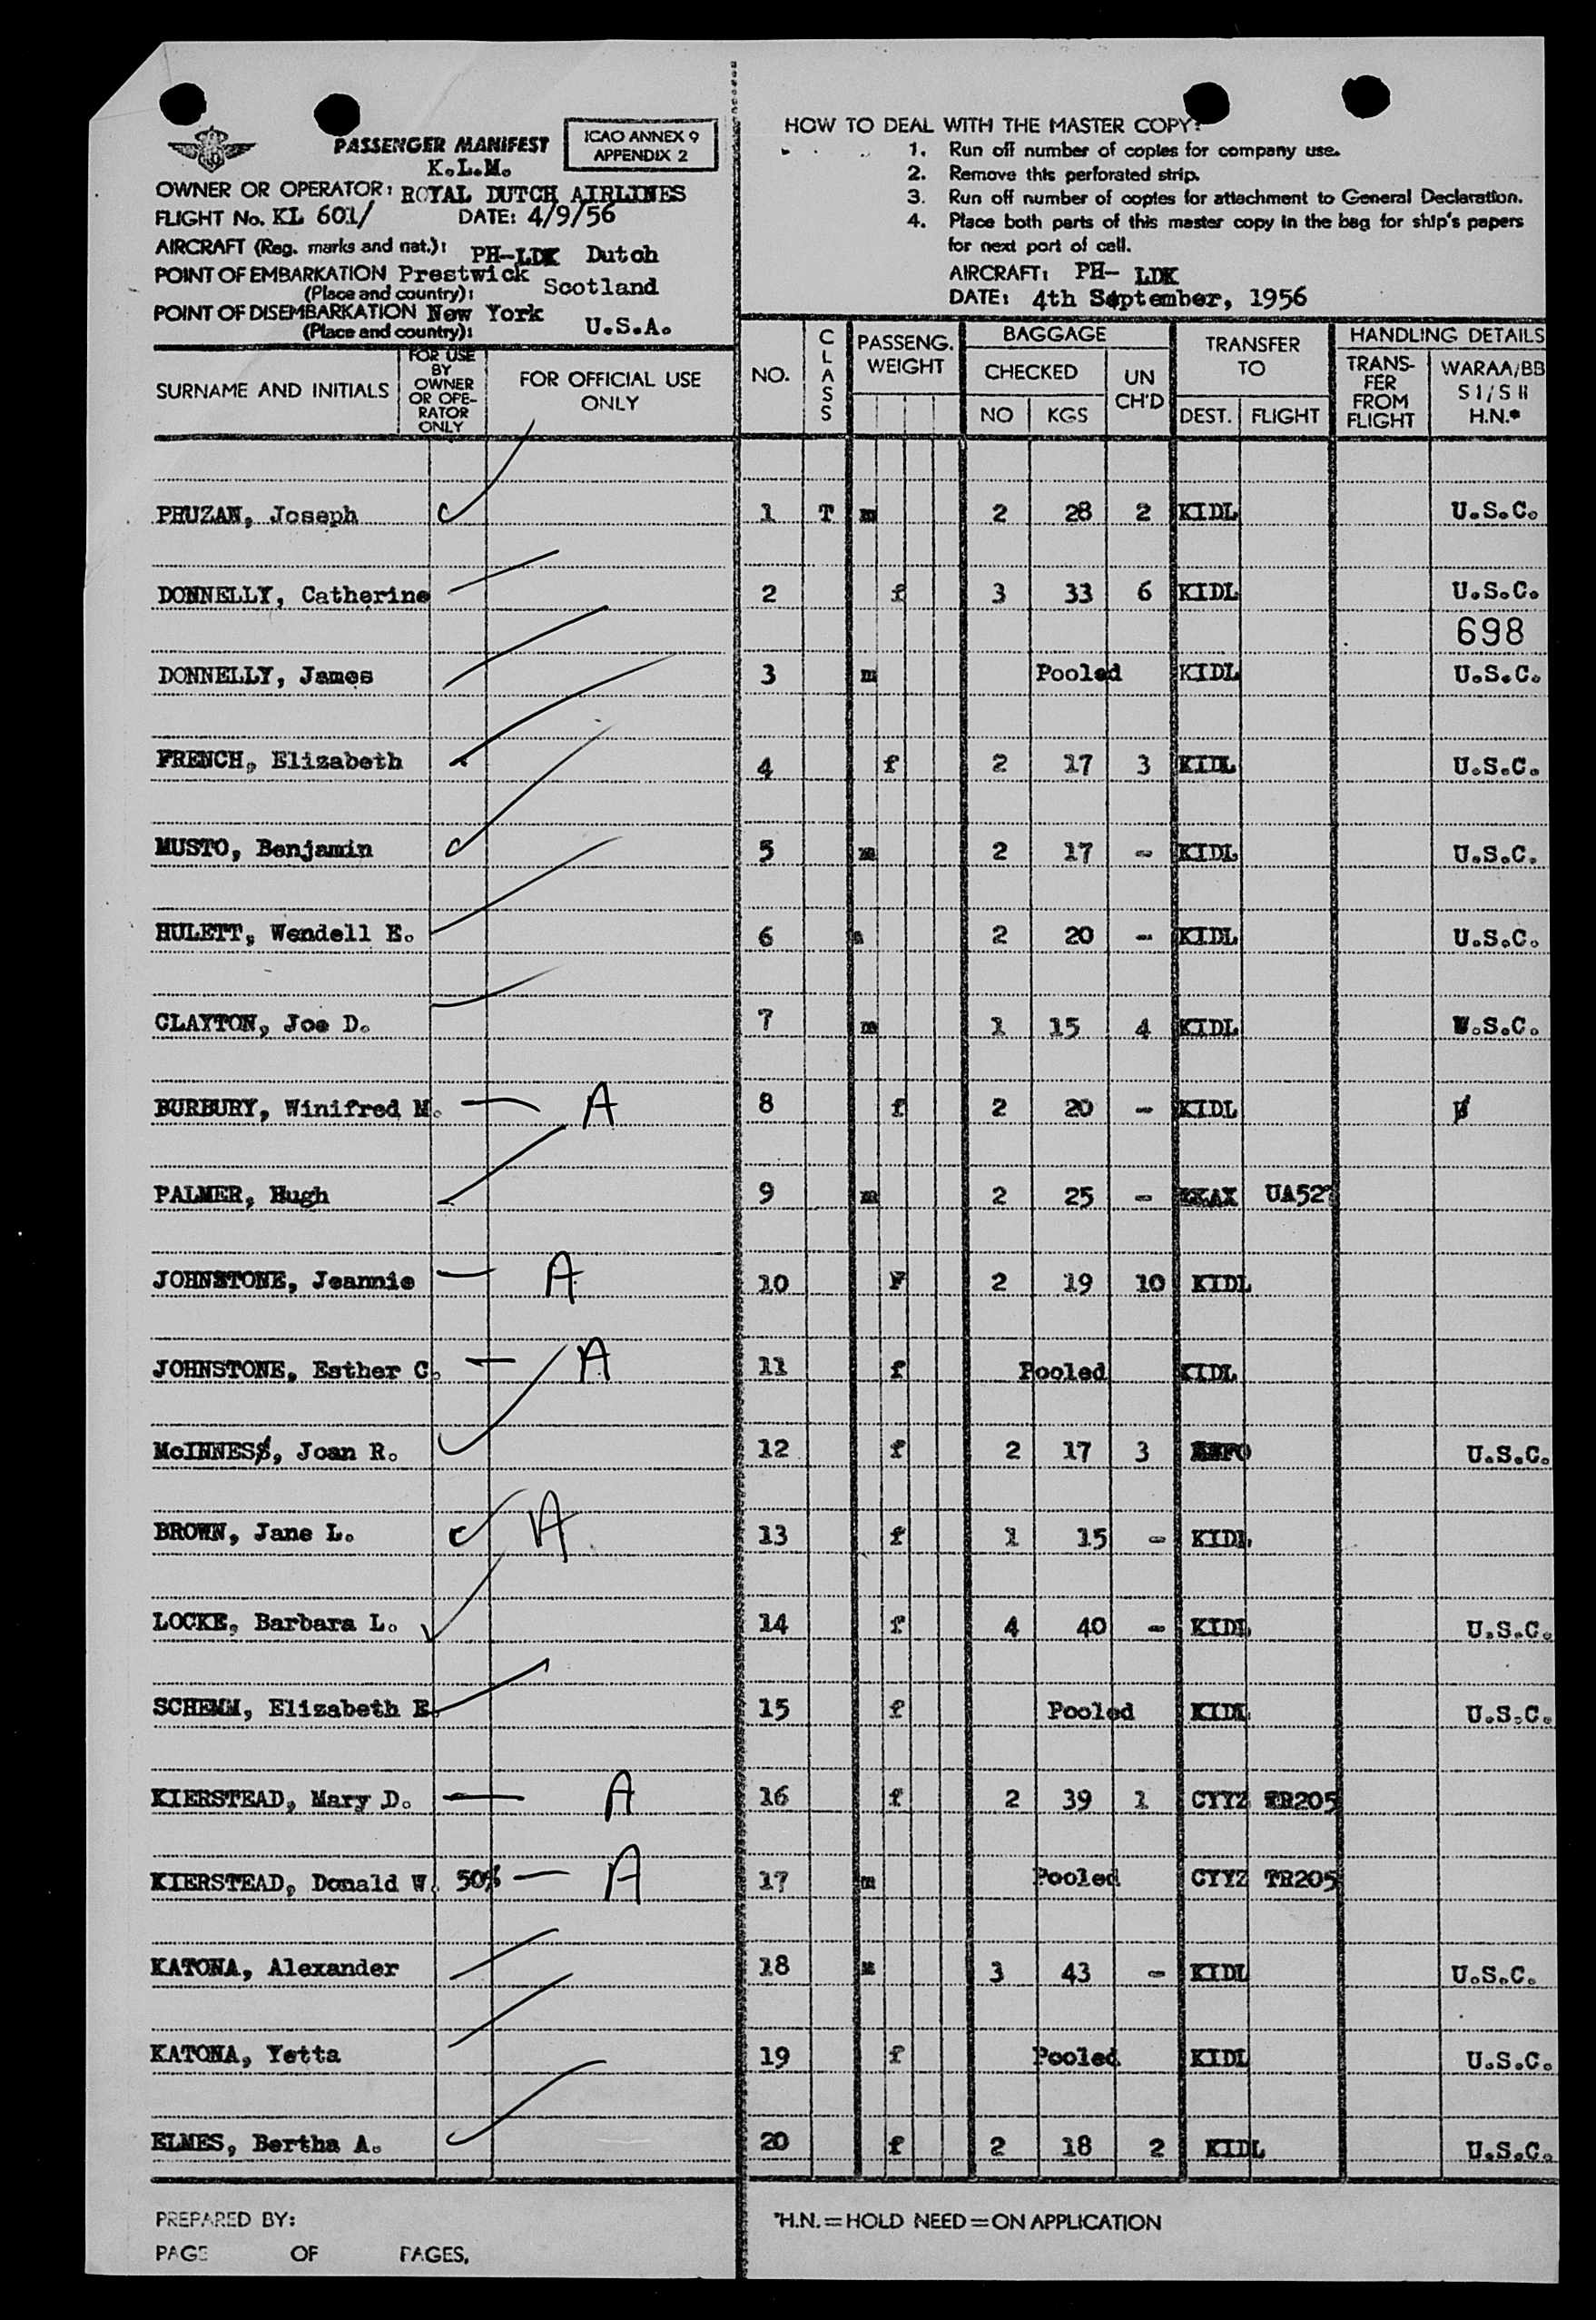 PASSENGER MANIFEST
ICAO ANNEX 9
APPENDIX 2
K.L.M.
OWNER OR OPERATOR: ROYAL DUTCH AIRLINES
FLIGHT No. KL 601/ DATE: 4/9/56
AIRCRAFT (Reg. marks and nat.): PH-LDK Dutch
POINT OF EMBARKATION Prestwick
(Place and country): Scotland
POINT OF DISEMBARKATION New York
(Place and country): U.S.A.
HOW TO DEAL WITH THE MASTER COPY:
1. Run off number of copies for company use.
2. Remove this perforated strip.
3. Run off number of copies for attachment to General Declaration.
4. Place both parts of this master copy in the bag for ship's papers
for next port of call.
AIRCRAFT: PH- LDK
DATE: 4th September, 1956
SURNAME AND INITIALS
FOR USE
BY
OWNER
OR OPE-
RATOR
ONLY
FOR OFFICIAL USE
ONLY
NO.
CLASS
PASSENG.
WEIGHT
BAGGAGE
CHECKED
NO KGS
UN
CH'D
TRANSFER
TO
DEST. FLIGHT
HANDLING DETAILS
TRANS-
FER
FROM
FLIGHT
WARAA/BB
S I / S II
H.N.*
PHUZAN, Joseph 1 T m 2 28 2 KIDL U.S.C.
DONNELLY, Catherine 2 f 3 33 6 KIDL U.S.C.
698
DONNELLY, James 3 m Pooled KIDL U.S.C.
FRENCH, Elizabeth 4 f 2 17 3 KIDL U.S.C.
MUSTO, Benjamin 5 m 2 17 - KIDL U.S.C.
HULETT, Wendell E. 6 m 2 20 - KIDL U.S.C.
CLAYTON, Joe D. 7 m 1 15 4 KIDL U.S.C.
BURBURY, Winifred M. A 8 f 2 20 - KIDL
PALMER, Hugh 9 m 2 25 -
JOHNSTONE, Jeannie A 10 F 2 19 10 KIDL
JOHNSTONE, Esther C. A 11 f Pooled KIDL
McINNES, Joan R. 12 f 2 17 3 U.S.C.
BROWN, Jane L. A 13 f 1 15 - KIDL
LOCKE, Barbara L. 14 f 4 40 - KIDL U.S.C.
SCHEMM, Elizabeth E. 15 f Pooled KIDL U.S.C.
KIERSTEAD, Mary D. A 16 f 2 39 1 CYYZ TR205
KIERSTEAD, Donald W. 50% A 17 m Pooled CYYZ TR205
KATONA, Alexander 18 m 3 43 - KIDL U.S.C.
KATONA, Yetta 19 f Pooled KIDL U.S.C.
ELMES, Bertha A. 20 f 2 18 2 KIDL U.S.C.
PREPARED BY:
PAGE OF PAGES.
*H.N.=HOLD NEED=ON APPLICATION